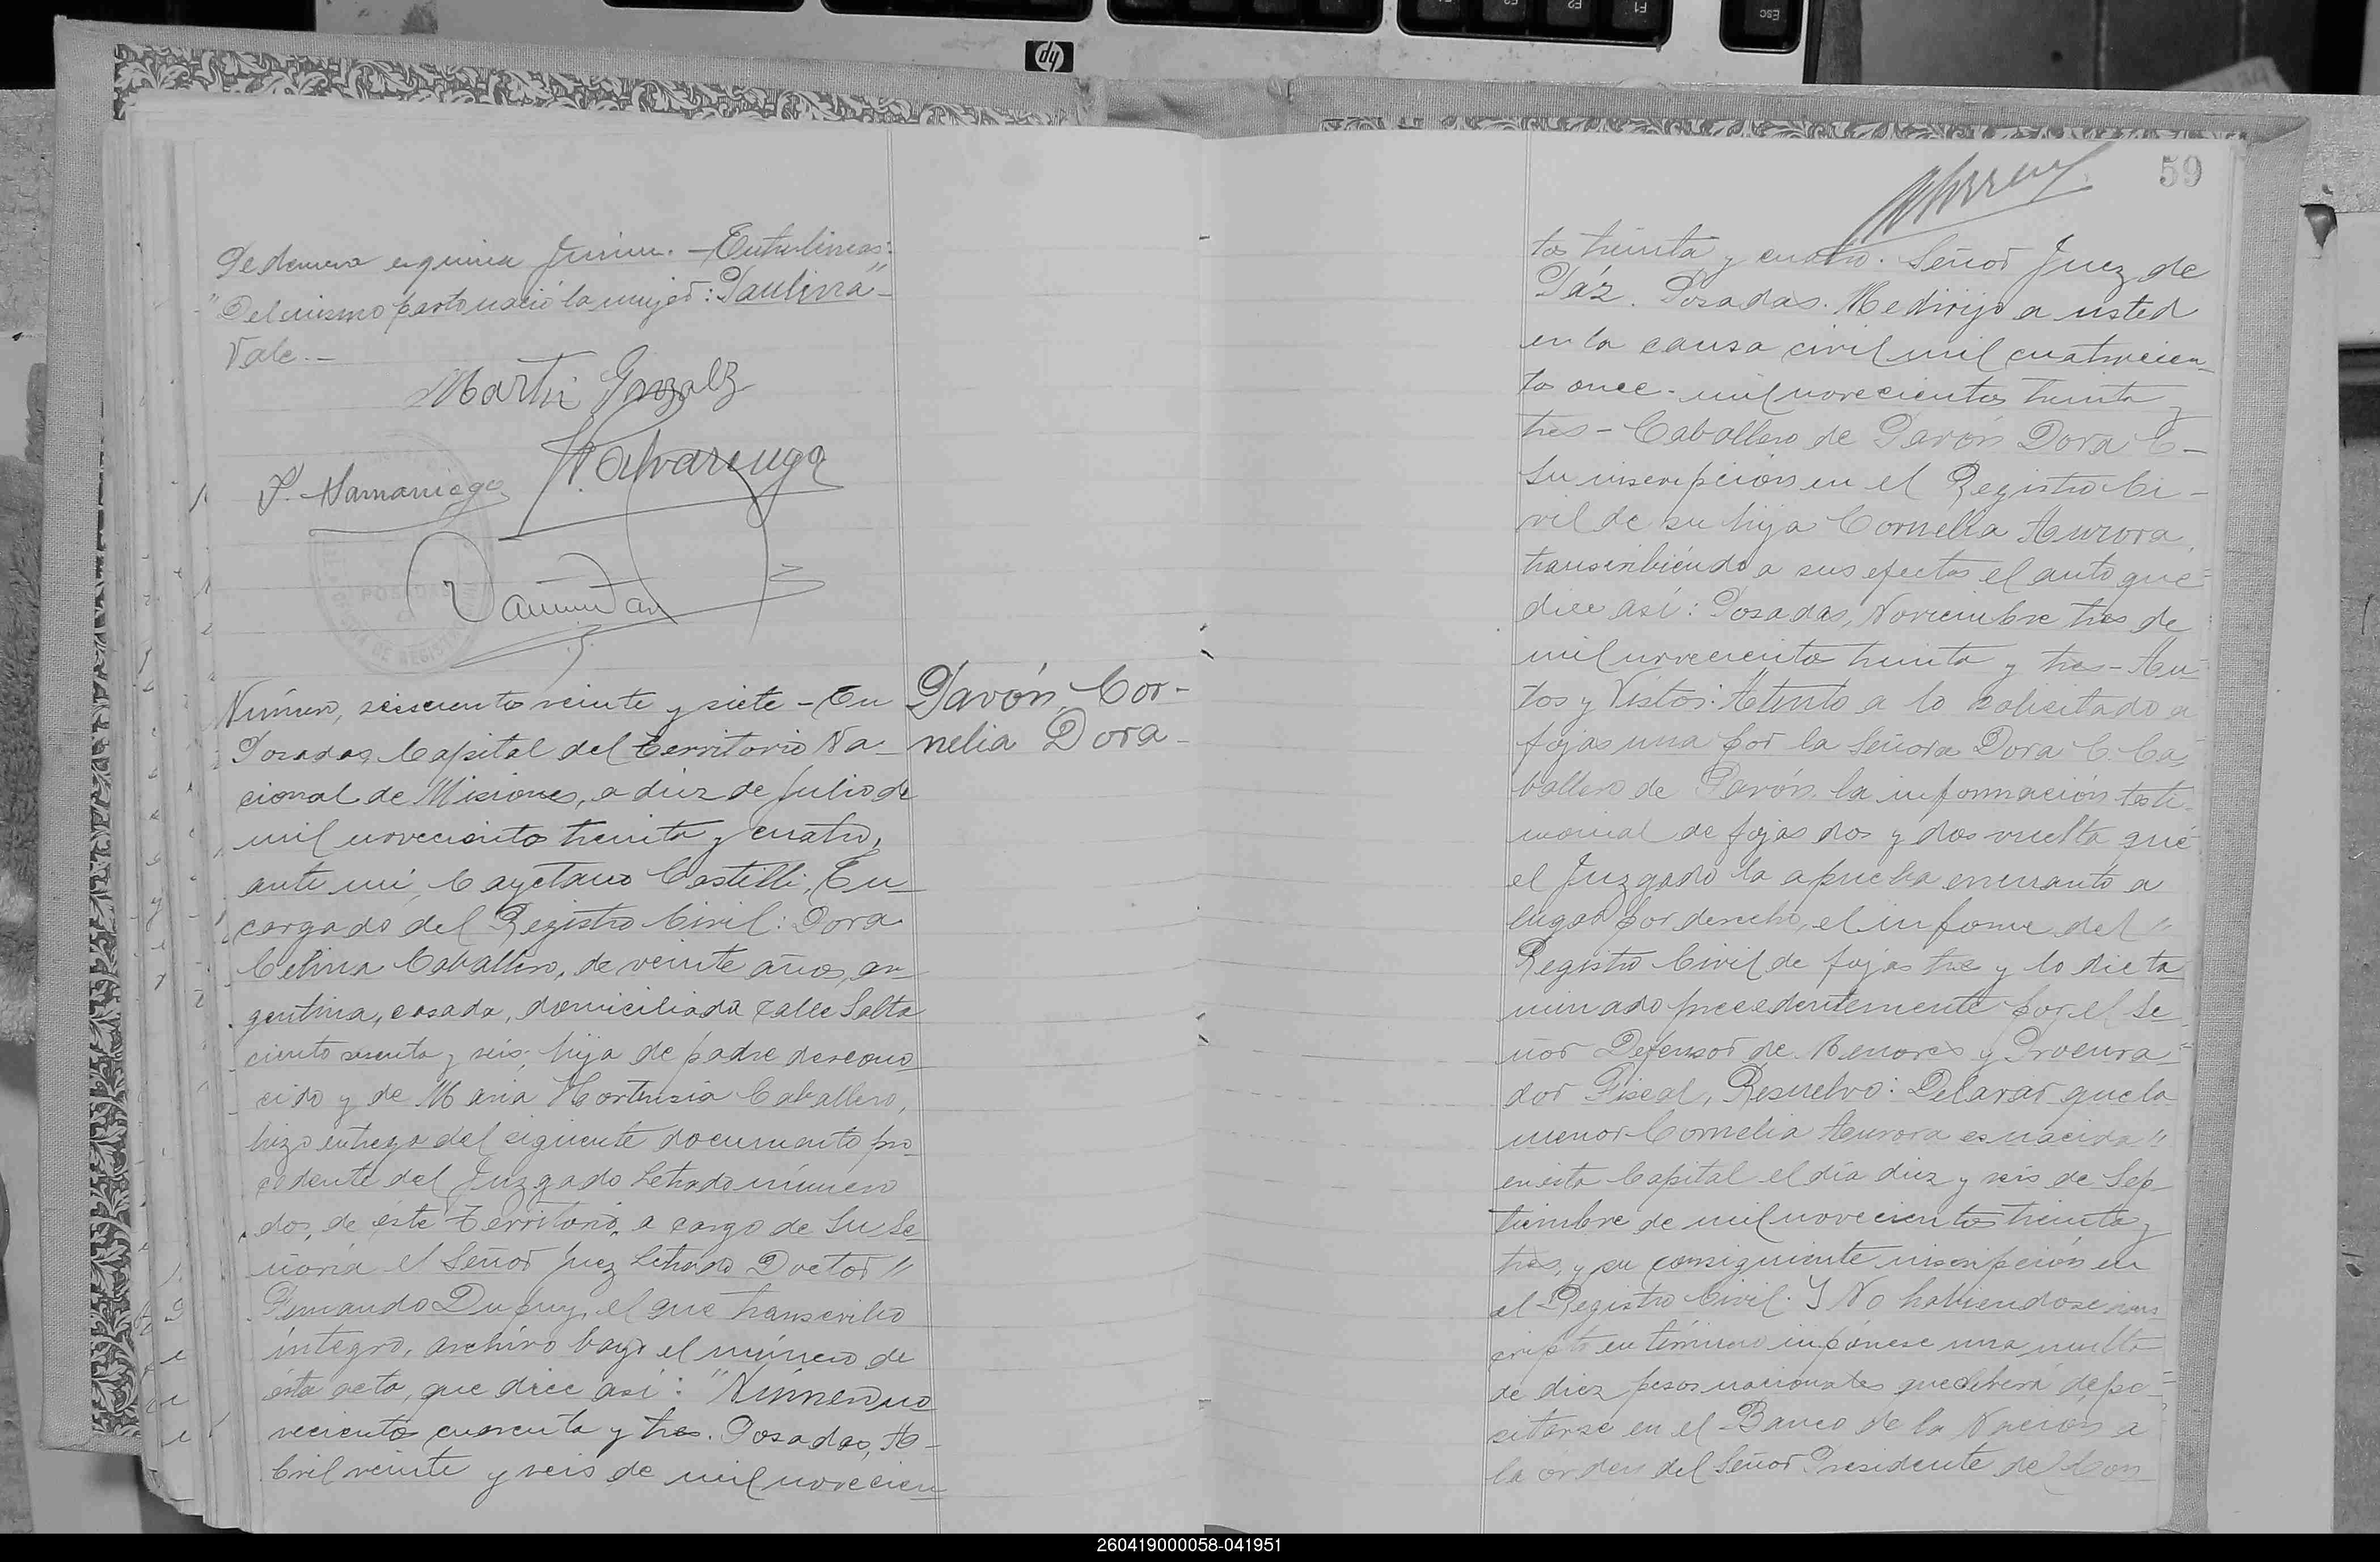 ESC
F1
F2
hp
59
Pedernera esquina Junin. - Entrelineas:
"Del mismo parto nació la mujer: Paulina" -
Vale. -
Martin Gonzalez
P. Samaniego
N. Alvarenga
POSADAS
Número, seiscientos veinte y siete - En
Posadas, Capital del Territorio Na-
cional de Misiones, a diez de Julio de
mil novecientos treinta y cuatro,
ante mí, Cayetano Castelli, En
cargado del Registro Civil: Dora
Celina Caballero, de veinte años, ar
gentina, casada, domiciliada calle Salta
ciento sesenta y seis; hija de padre descono
cido y de Maria Hortensia Caballero,
hizo entrega del siguiente documento pro
cedente del Juzgado Letrado número
dos, de éste Territorio, a cargo de Su Se
ñoria el Señor Juez Letrado Doctor "
Fernando Dupuy, el que transcribo
íntegro, archivo bajo el número de
ésta acta, que dice así: "Número no
vecientos cuarenta y tres. Posadas, A-
bril veinte y seis de mil novecien
Pavón, Cor-
nelia Dora -
tos treinta y cuatro. Señor Juez de
Páz. Posadas. Me dirijo a usted
en la causa civil mil cuatrocien
tos once - mil novecientos treinta y
tres - Caballero de Pavón Dora C -
Su inscripción en el Registro Ci -
vil de su hija Cornelia Aurora,
transcribiéndo a sus efectos el auto que =
dice así: Posadas, Noviembre tres de
mil novecientos treinta y tres - Au
tos y Vistos: Atento a lo solicitado a
fojas una por la Señora Dora C. Ca
ballero de Pavón, la información testi-
monial de fojas dos y dos vuelta que
el Juzgado la aprueba en cuanto a
lugar por derecho, el informe del "
Registro Civil de fojas tres y lo dicta
minado precedentemente por el Se
ñor Defensor de Menores y Procura =
dor Fiscal, Resuelvo: Delarar que la
menor Cornelia Aurora es nacida "
en esta Capital el día diez y seis de Sep
tiembre de mil novecientos treinta y
tres, y su consiguiente inscripción en
el Registro Civil. Y No habiendose ins
cripto en término impónese una multa
de diez pesos nacionales que deberá depo =
sitarse en el Banco de la Nación a
la órden del Señor Presidente del Con
260419000058-041951